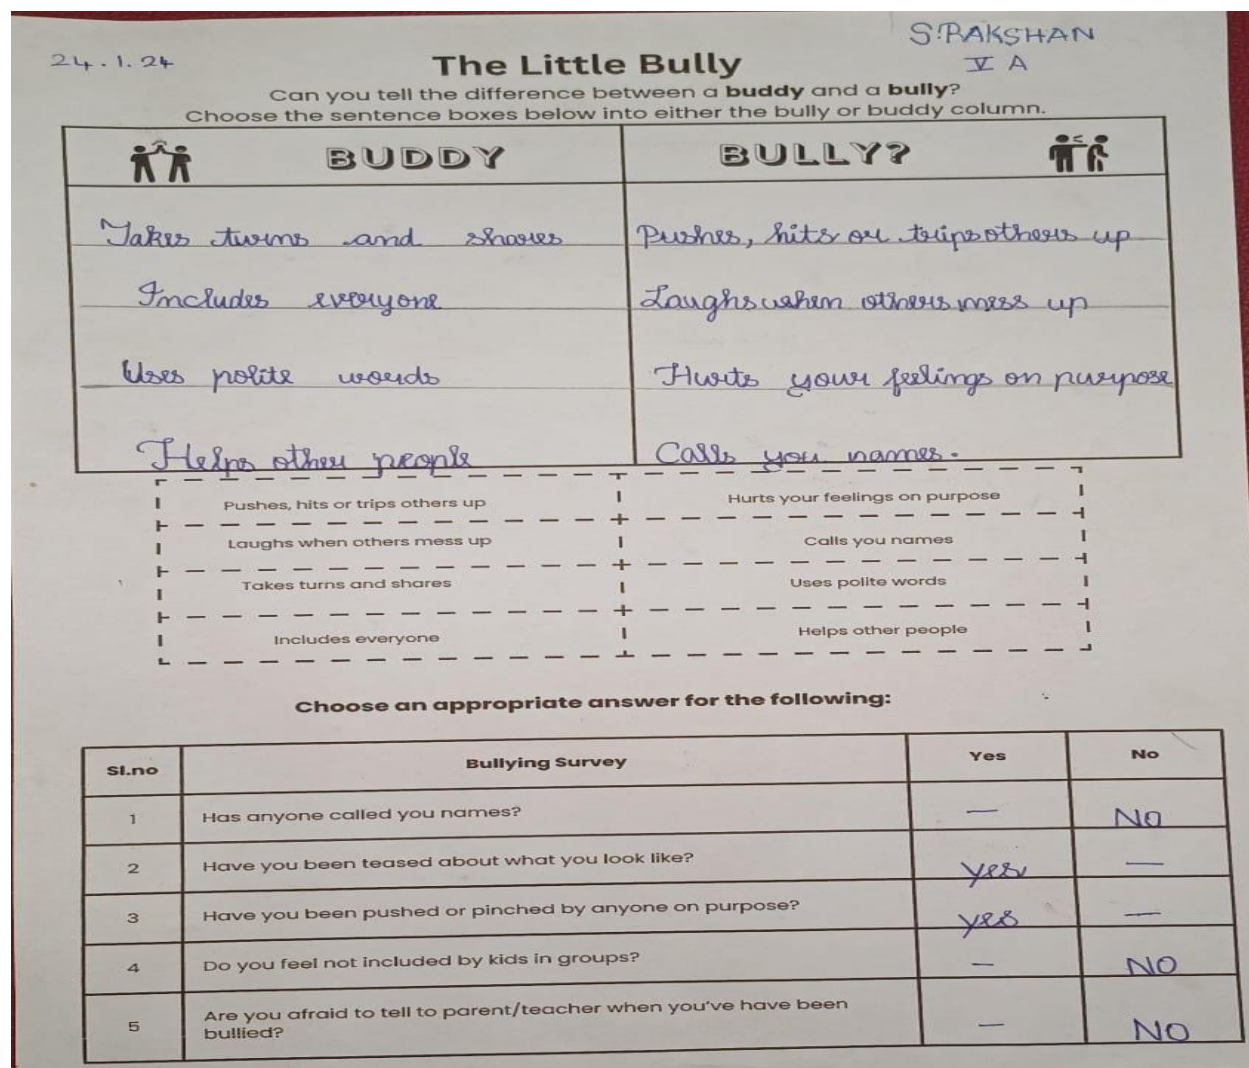 24.1.24
S.RAKSHAN
V A
The Little Bully
Can you tell the difference between a buddy and a bully?
Choose the sentence boxes below into either the bully or buddy column.
BUDDY BULLY?
Takes turns and shares Pushes, hits or trips others up
Includes everyone Laughs when others mess up
Uses polite words Hurts your feelings on purpose
Helps other people Calls you names.
Pushes, hits or trips others up Hurts your feelings on purpose
Laughs when others mess up Calls you names
Takes turns and shares Uses polite words
Includes everyone Helps other people
Choose an appropriate answer for the following:
Sl.no Bullying Survey Yes No
1 Has anyone called you names? — NO
2 Have you been teased about what you look like? yes —
3 Have you been pushed or pinched by anyone on purpose? yes —
4 Do you feel not included by kids in groups? — NO
5 Are you afraid to tell to parent/teacher when you've have been
bullied? — NO